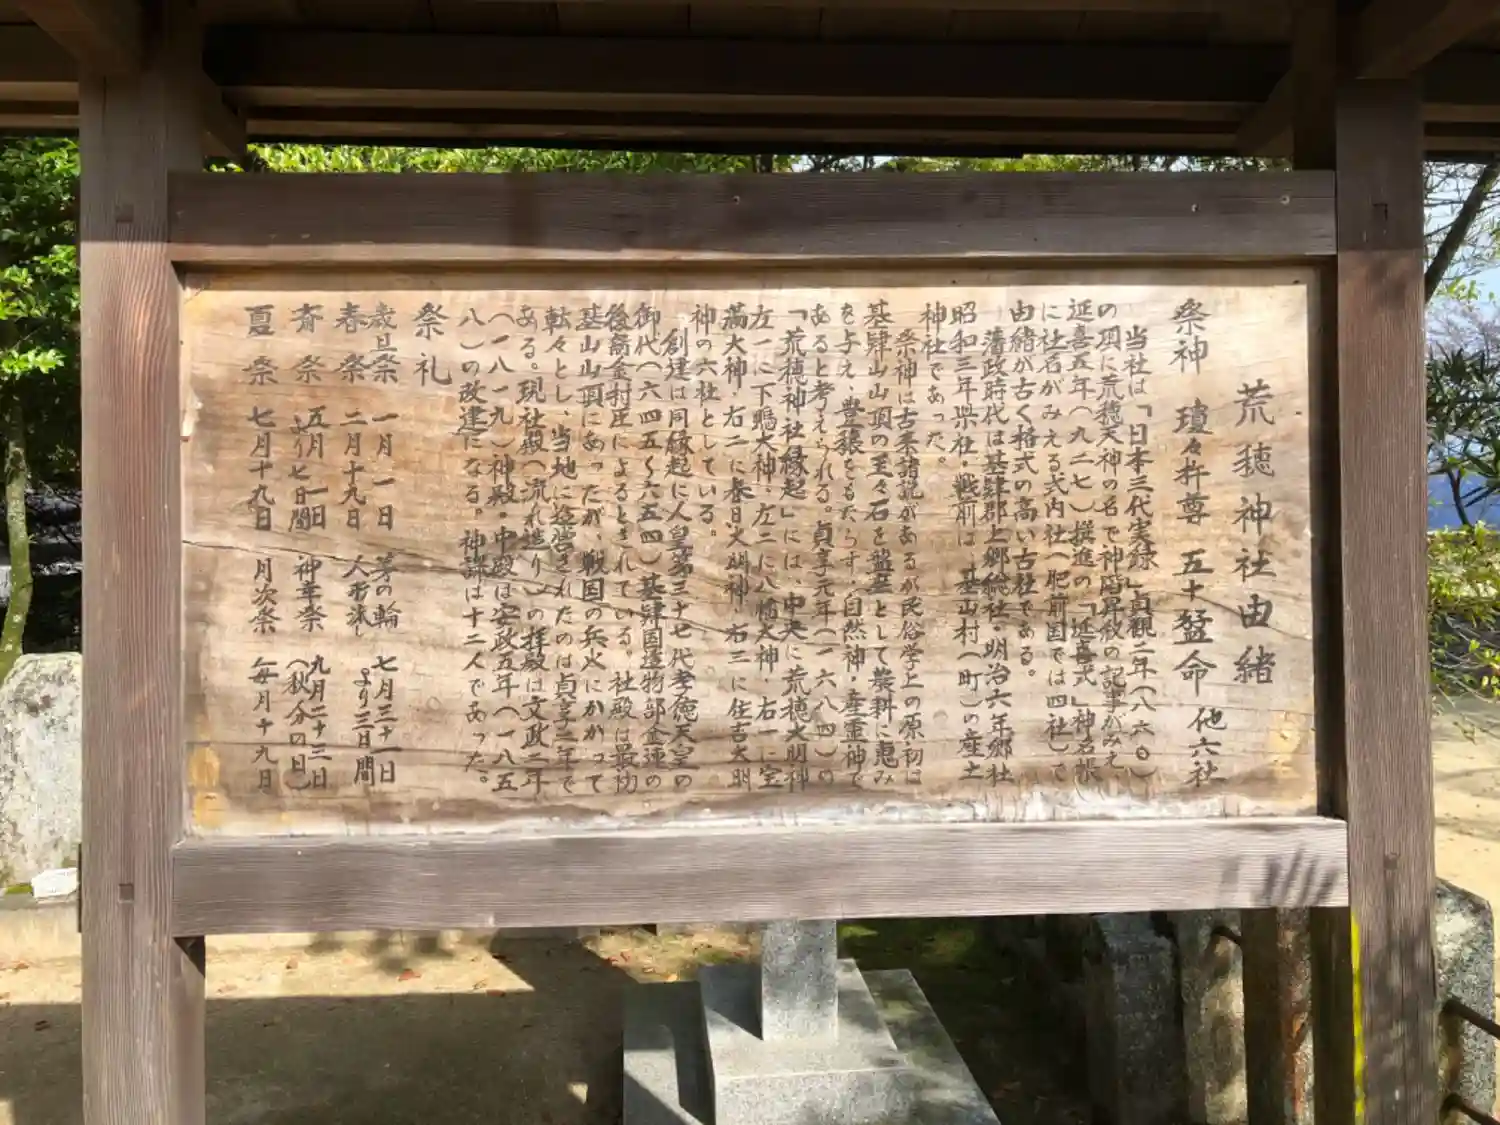 荒穂神社由緒
祭神 瓊々杵尊 五十猛命 他六社
当社は「日本三代実録」貞観二年(八六〇)
の項に荒穂天神の名で神階昇叙の記事がみえ、
延喜五年(九二七)撰進の「延喜式」神名帳
に社名がみえる式内社(肥前国では四社)で
由緒が古く格式の高い古社である。
藩政時代は基肄郡上郷総社・明治六年郷社
昭和三年県社・戦前は、基山村(町)の産土
神社であった。
祭神は古来諸説があるが民俗学上の原初は
基肄山山頂の玉々石を盤座として崇拝に恵み
を与え、豊穣をもたらす、自然神・産霊神で
あると考えられる。貞享元年(一六八四)の
「荒穂神社縁起」には、中央に荒穂大明神
左一に下鴨大神・左二に八幡大神・右一に宝
満大神・右二に春日大明神・右三に住吉大明
神の六社としている。
創建は同縁起に人皇第三十七代孝徳天皇の
御代(六四五〜六五四)基肄国造物部金連の
後裔金村臣によるとされている。社殿は最初
基山山頂にあったが、戦国の兵火にかかって
転々とし、当地に造営されたのは貞享二年で
ある。現社殿(流れ造り)の拝殿は文政二年
(一八一九)神殿・中殿は安政五年(一八五
八)の改建になる。神課は十二人であった。
祭礼
歳旦祭 一月一日 茅の輪 七月三十一日
春祭 二月十九日 人形流し より三日間
斎祭 五月一日より七日間 神幸祭 九月二十三日(秋分の日)
夏祭 七月十九日 月次祭 毎月十九日